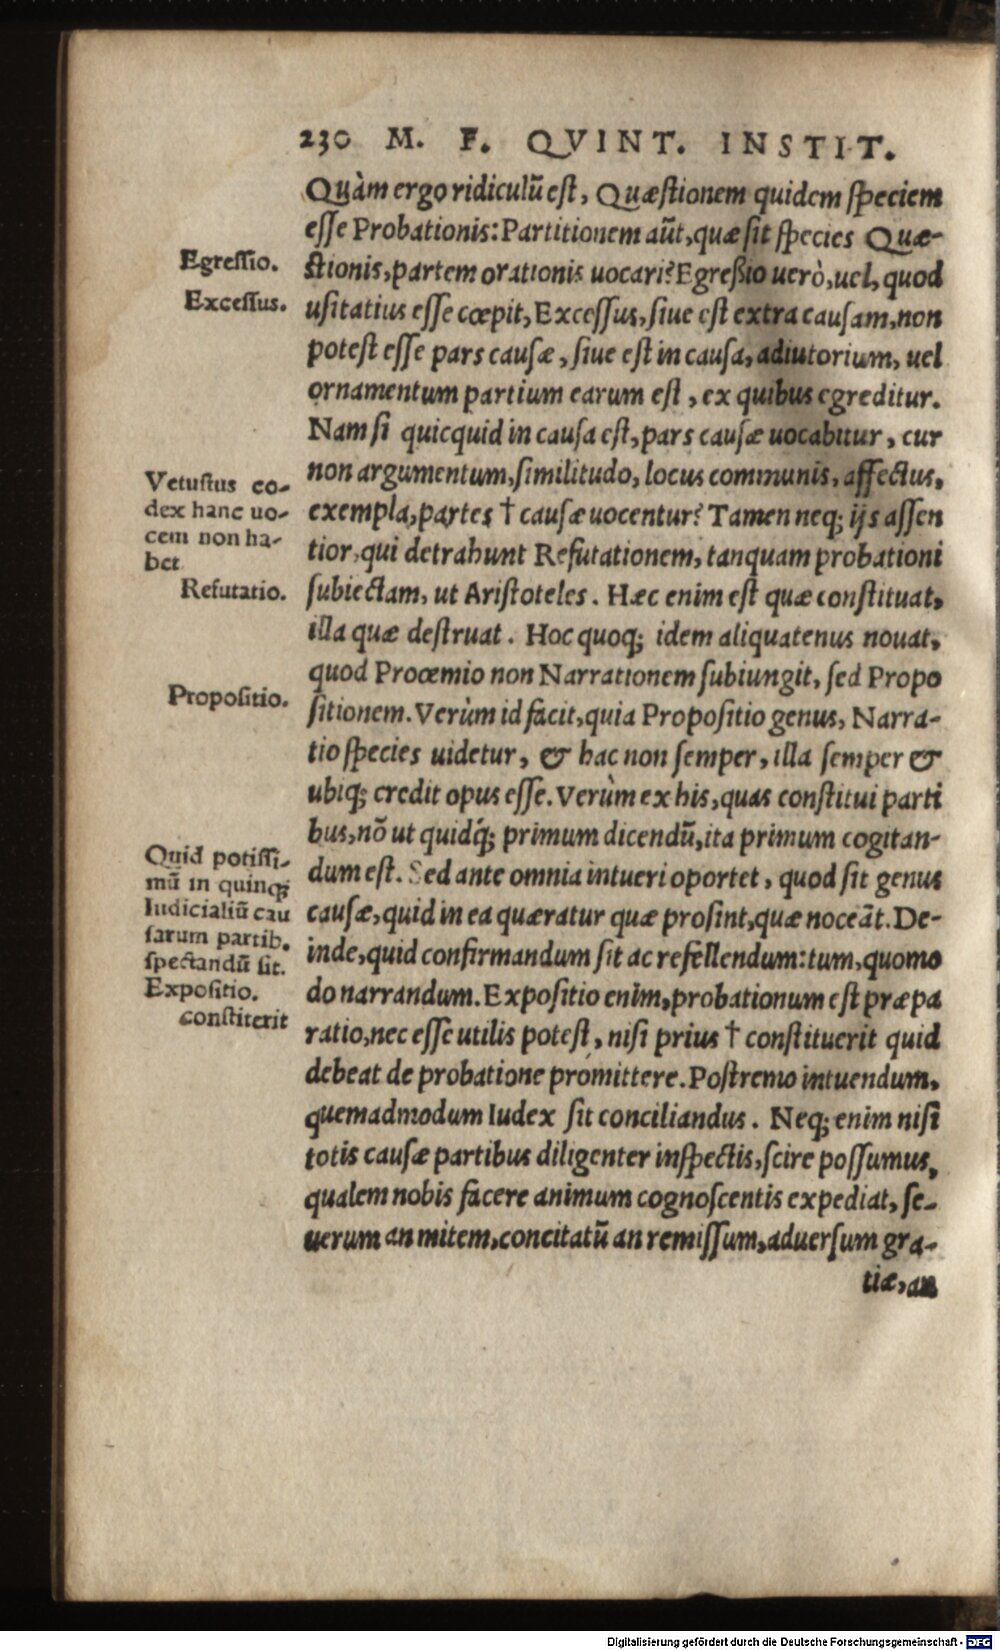 230 M. F. QVINT. INSTIT.
Quàm ergo ridiculũ est, Quæstionem quidem speciem
esse Probationis: Partitionem aũt, quæ sit species Quæ-
Egressio.
stionis, partem orationis uocari? Egreßio uerò, uel, quod
Excessus.
usitatius esse cœpit, Excessus, siue est extra causam, non
potest esse pars causæ, siue est in causa, adiutorium, uel
ornamentum partium earum est, ex quibus egreditur.
Nam si quicquid in causa est, pars causæ uocabitur, cur
non argumentum, similitudo, locus communis, affectus,
Vetustus co-
dex hanc uo-
cem non ha-
bet
exempla, partes † causæ uocentur? Tamen neq; ijs assen
tior, qui detrahunt Refutationem, tanquam probationi
Refutatio.
subiectam, ut Aristoteles. Hæc enim est quæ constituat,
illa quæ destruat. Hoc quoq; idem aliquatenus nouat,
quod Procœmio non Narrationem subiungit, sed Propo
Propositio.
sitionem. Verùm id facit, quia Propositio genus, Narra-
tio species uidetur, & hac non semper, illa semper &
ubiq; credit opus esse. Verùm ex his, quas constitui parti
bus, nõ ut quidq́; primum dicendũ, ita primum cogitan-
Quid potissi-
mũ in quinq;
Iudicialiũ cau
sarum partib.
spectandũ sit.
dum est. Sed ante omnia intueri oportet, quod sit genus
causæ, quid in ea quæratur quæ prosint, quæ noceãt. De-
inde, quid confirmandum sit ac refellendum: tum, quomo
Expositio.
do narrandum. Expositio enim, probationum est præpa
constiterit
ratio, nec esse utilis potest, nisi prius † constituerit quid
debeat de probatione promittere. Postremo intuendum,
quemadmodum Iudex sit conciliandus. Neq; enim nisi
totis causæ partibus diligenter inspectis, scire possumus,
qualem nobis facere animum cognoscentis expediat, se-
uerum an mitem, concitatũ an remissum, aduersum gra-
tiæ, an
Digitalisierung gefördert durch die Deutsche Forschungsgemeinschaft - DFG